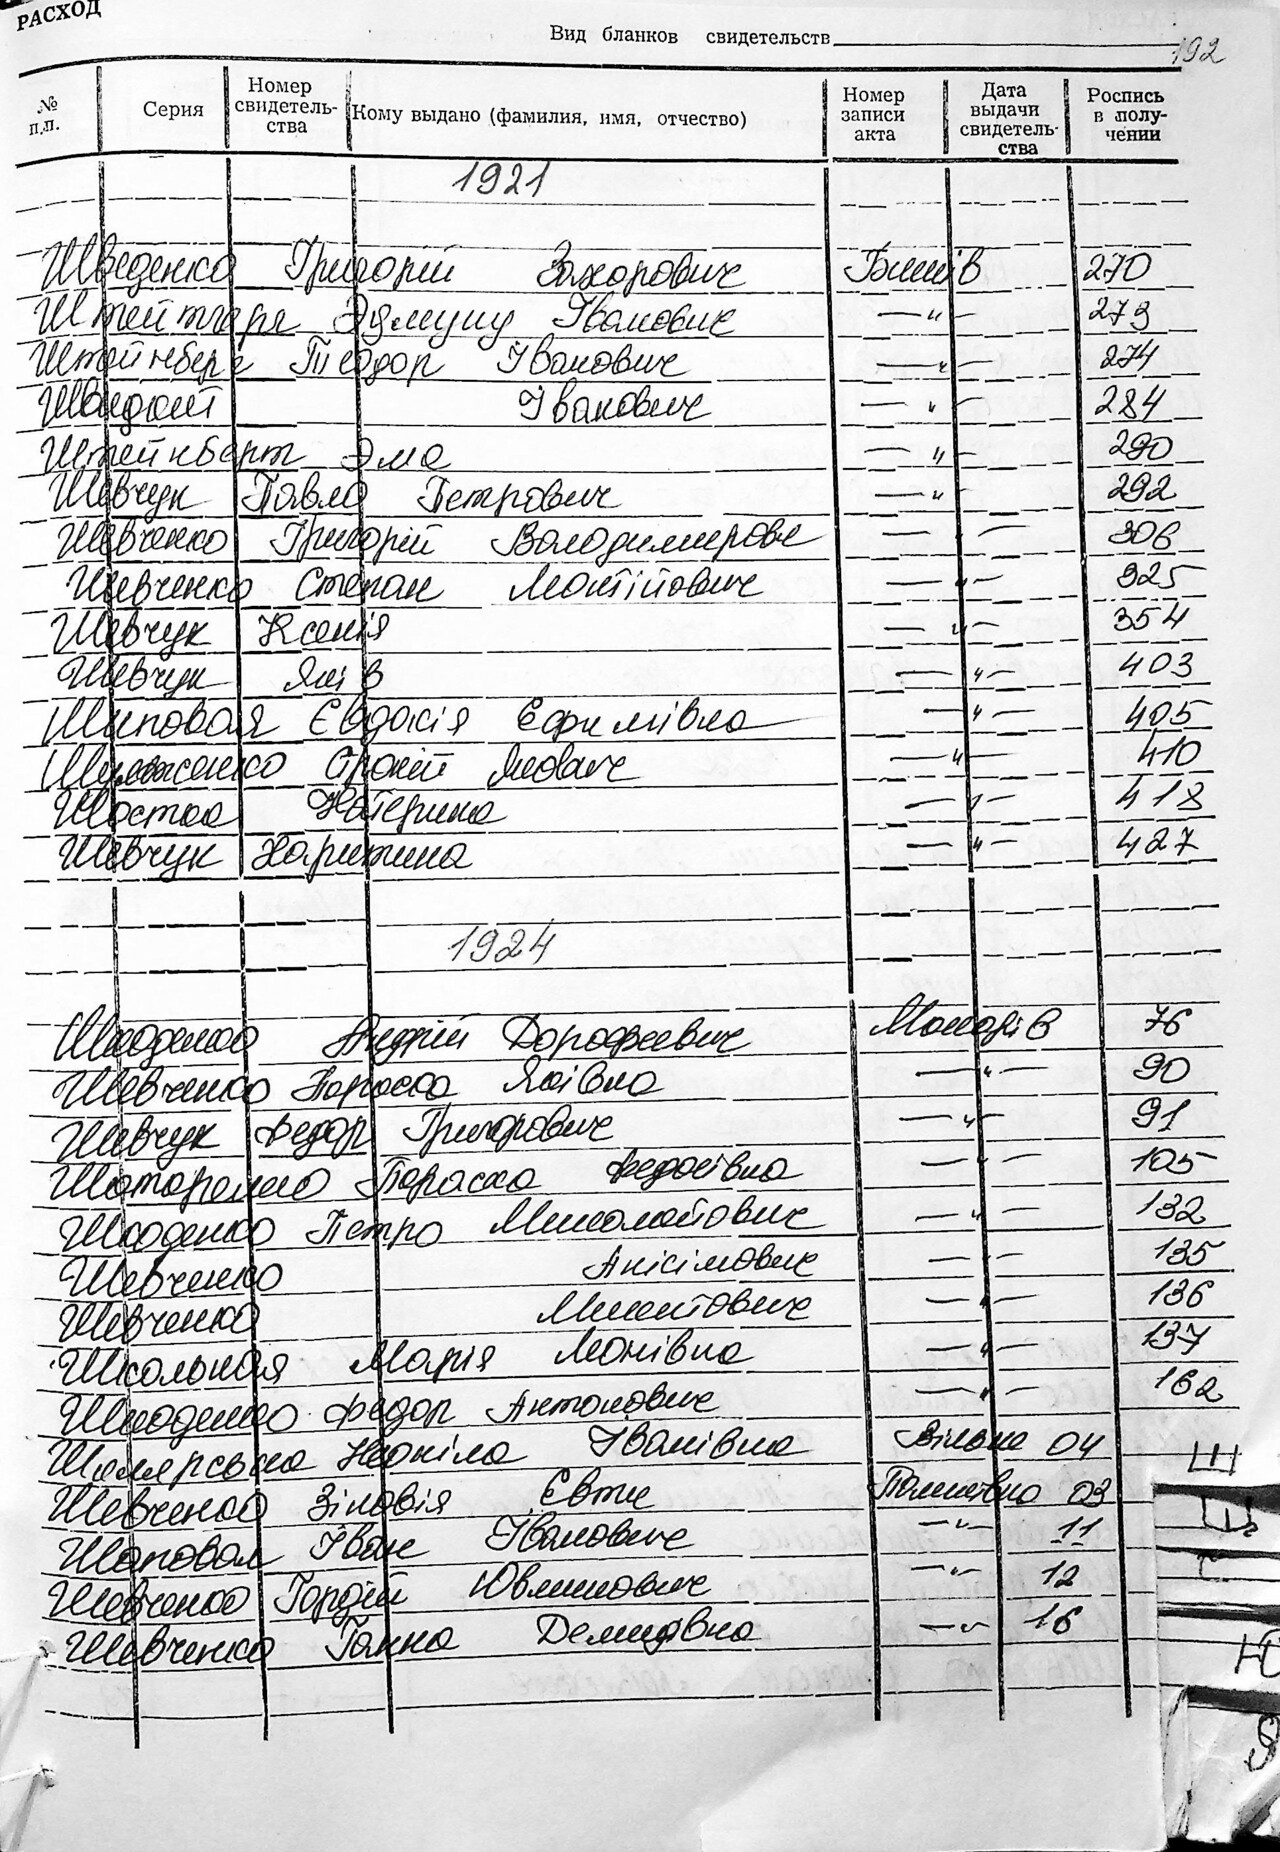 РАСХОД
Вид бланков свидетельств 192
№ п.п. Серия Номер свидетель- ства Кому выдано (фамилия, имя, отчество) Номер записи акта Дата выдачи свидетель- ства Роспись в полу- чении
1921
Шведенко Григорій Захарович Бишів 270
Эдмунд Іванович — " — 273
Штейнберг Теодор Іванович — " — 274
Іванович — " — 284
Штейнберг Эма — " — 290
Шевчук Павло Петрович — " — 292
Шевченко Григорій Володимирови — " — 306
Шевченко Степан Матійович — " — 325
Шевчук Ксенія — " — 354
Шевчук Яків — " — 403
Шиповая Євдокія Єфимівна — " — 405
Якович — " — 410
Шостка Катерина — " — 418
Шевчук Харитина — " — 427
1924
Шкоденко Андрій Дорофеевич Макарів 76
Шевченко Параска Яківна — " — 90
Шевчук Федор Григорович — " — 91
Параска Федосівна — " — 105
Шкоденко Петро Миколайович — " — 132
Шевченко Анісімович — " — 135
Шевченко Микитович — " — 136
Школьная Марія — " — 137
Шкоденко Федор Антонович — " — 162
Іванівна Вільне 04
Шевченко Зіновія Євти 03
Шаповал Іван Іванович — " — 11
Шевченко Гордій — " — 12
Шевченко Ганна Демидівна — " — 16
Ш
Щ
Ю
Я